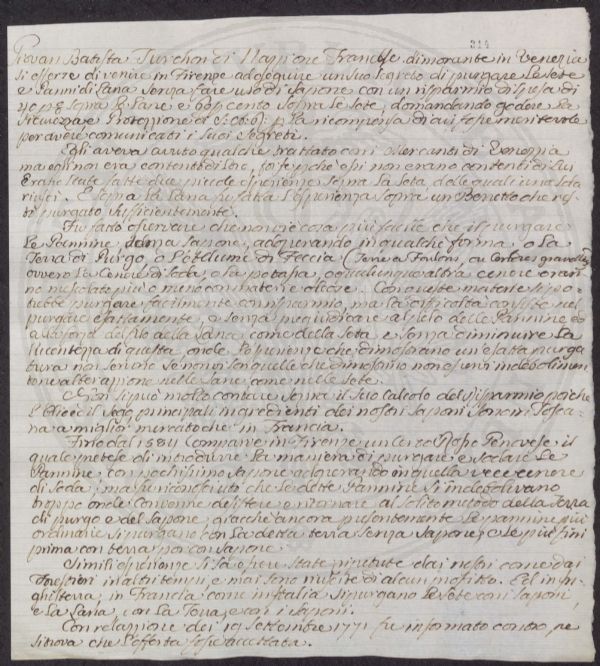 314
Giovan Batista Turchon di Nazzione Francese dimorante in Venezia
si offerse di venire in Firenze ad eseguire un suo segreto di purgare le sete
e Panni di Lana senza fare uso di sapone con un risparmio di spesa di
40 p% sopra le Lane e 60 p cento sopra le sete, domandando godere la
sicurezza e Protezione di
per avere comunicati i suoi segreti.
Egli aveva avuto qualche trattato con i Mercanti di Venezia
ma o egli non era contento di loro, o forse perche essi non erano contenti di lui
Erano state fatte due piccole esperienze sopra la seta, delle quali una sola
riuscì. E sopra la Lana fu fatta l'esperienza sopra un Bonetto che re=
stò purgato sufficientemente.
Fu fatto osservare che non vi è cosa più facile che il purgare
le Pannine senza sapone, adoperando in qualche forma, o la
Terra di Purgo, o l'Allume di Feccia (Terre a Foulons, ou Cendres gravellées)
ovvero la Cenere di soda, o la potassa, o qualunque altra cenere ordi=
ne mescolato più o meno con materie oliose. Con queste materie si po=
trebbe purgare facilmente con risparmio, ma la difficoltà consiste nel
purgare esattamente, e senza pregiudicare al pelo delle Pannine
della Lana come della seta e senza diminuire la
lucentezza di questa, onde l'esperienze che dimostrano un'esatta purga
tura non servono se non vi son quelle che dimostrino non esservi indebolimen
to ne alterazione nelle Lane, come nelle sete.
Non si può molto contare sopra il suo calcolo del risparmio poiche
l'Olio e il sego principali ingredienti dei nostri saponi sono in Tosca=
na a miglior mercato che in Francia.
Fino dal 1584 Comparve in Firenze un Certo Genovese il
quale pretese di introdurre la maniera di purgare, e sodare le
Pannine con pochissimo sapone adoperando in quella vece cenere
di soda; ma fu riconosciuto che le dette Pannine si indebolivano
troppo onde Convenne desistere e ritornare al solito metodo della Terra
di purgo e del sapone, giacche ancora presentemente le pannine più
ordinarie si purgano con la detta terra senza sapone; e le più fini
prima con terra poi con sapone.
Simili esperienze si sà essere state ripetute dai nostri come dai
Forestieri in altri tempi, e mai sono riuscite di alcun profitto. Ed in In=
ghilterra, in Francia come in Italia si purgano le sete con saponi
e la Lana, con la Terra, e con i saponi.
Con relazione dei 19 settembre 1771 fu informato contro ne
si trova che l'offerta fosse accettata.